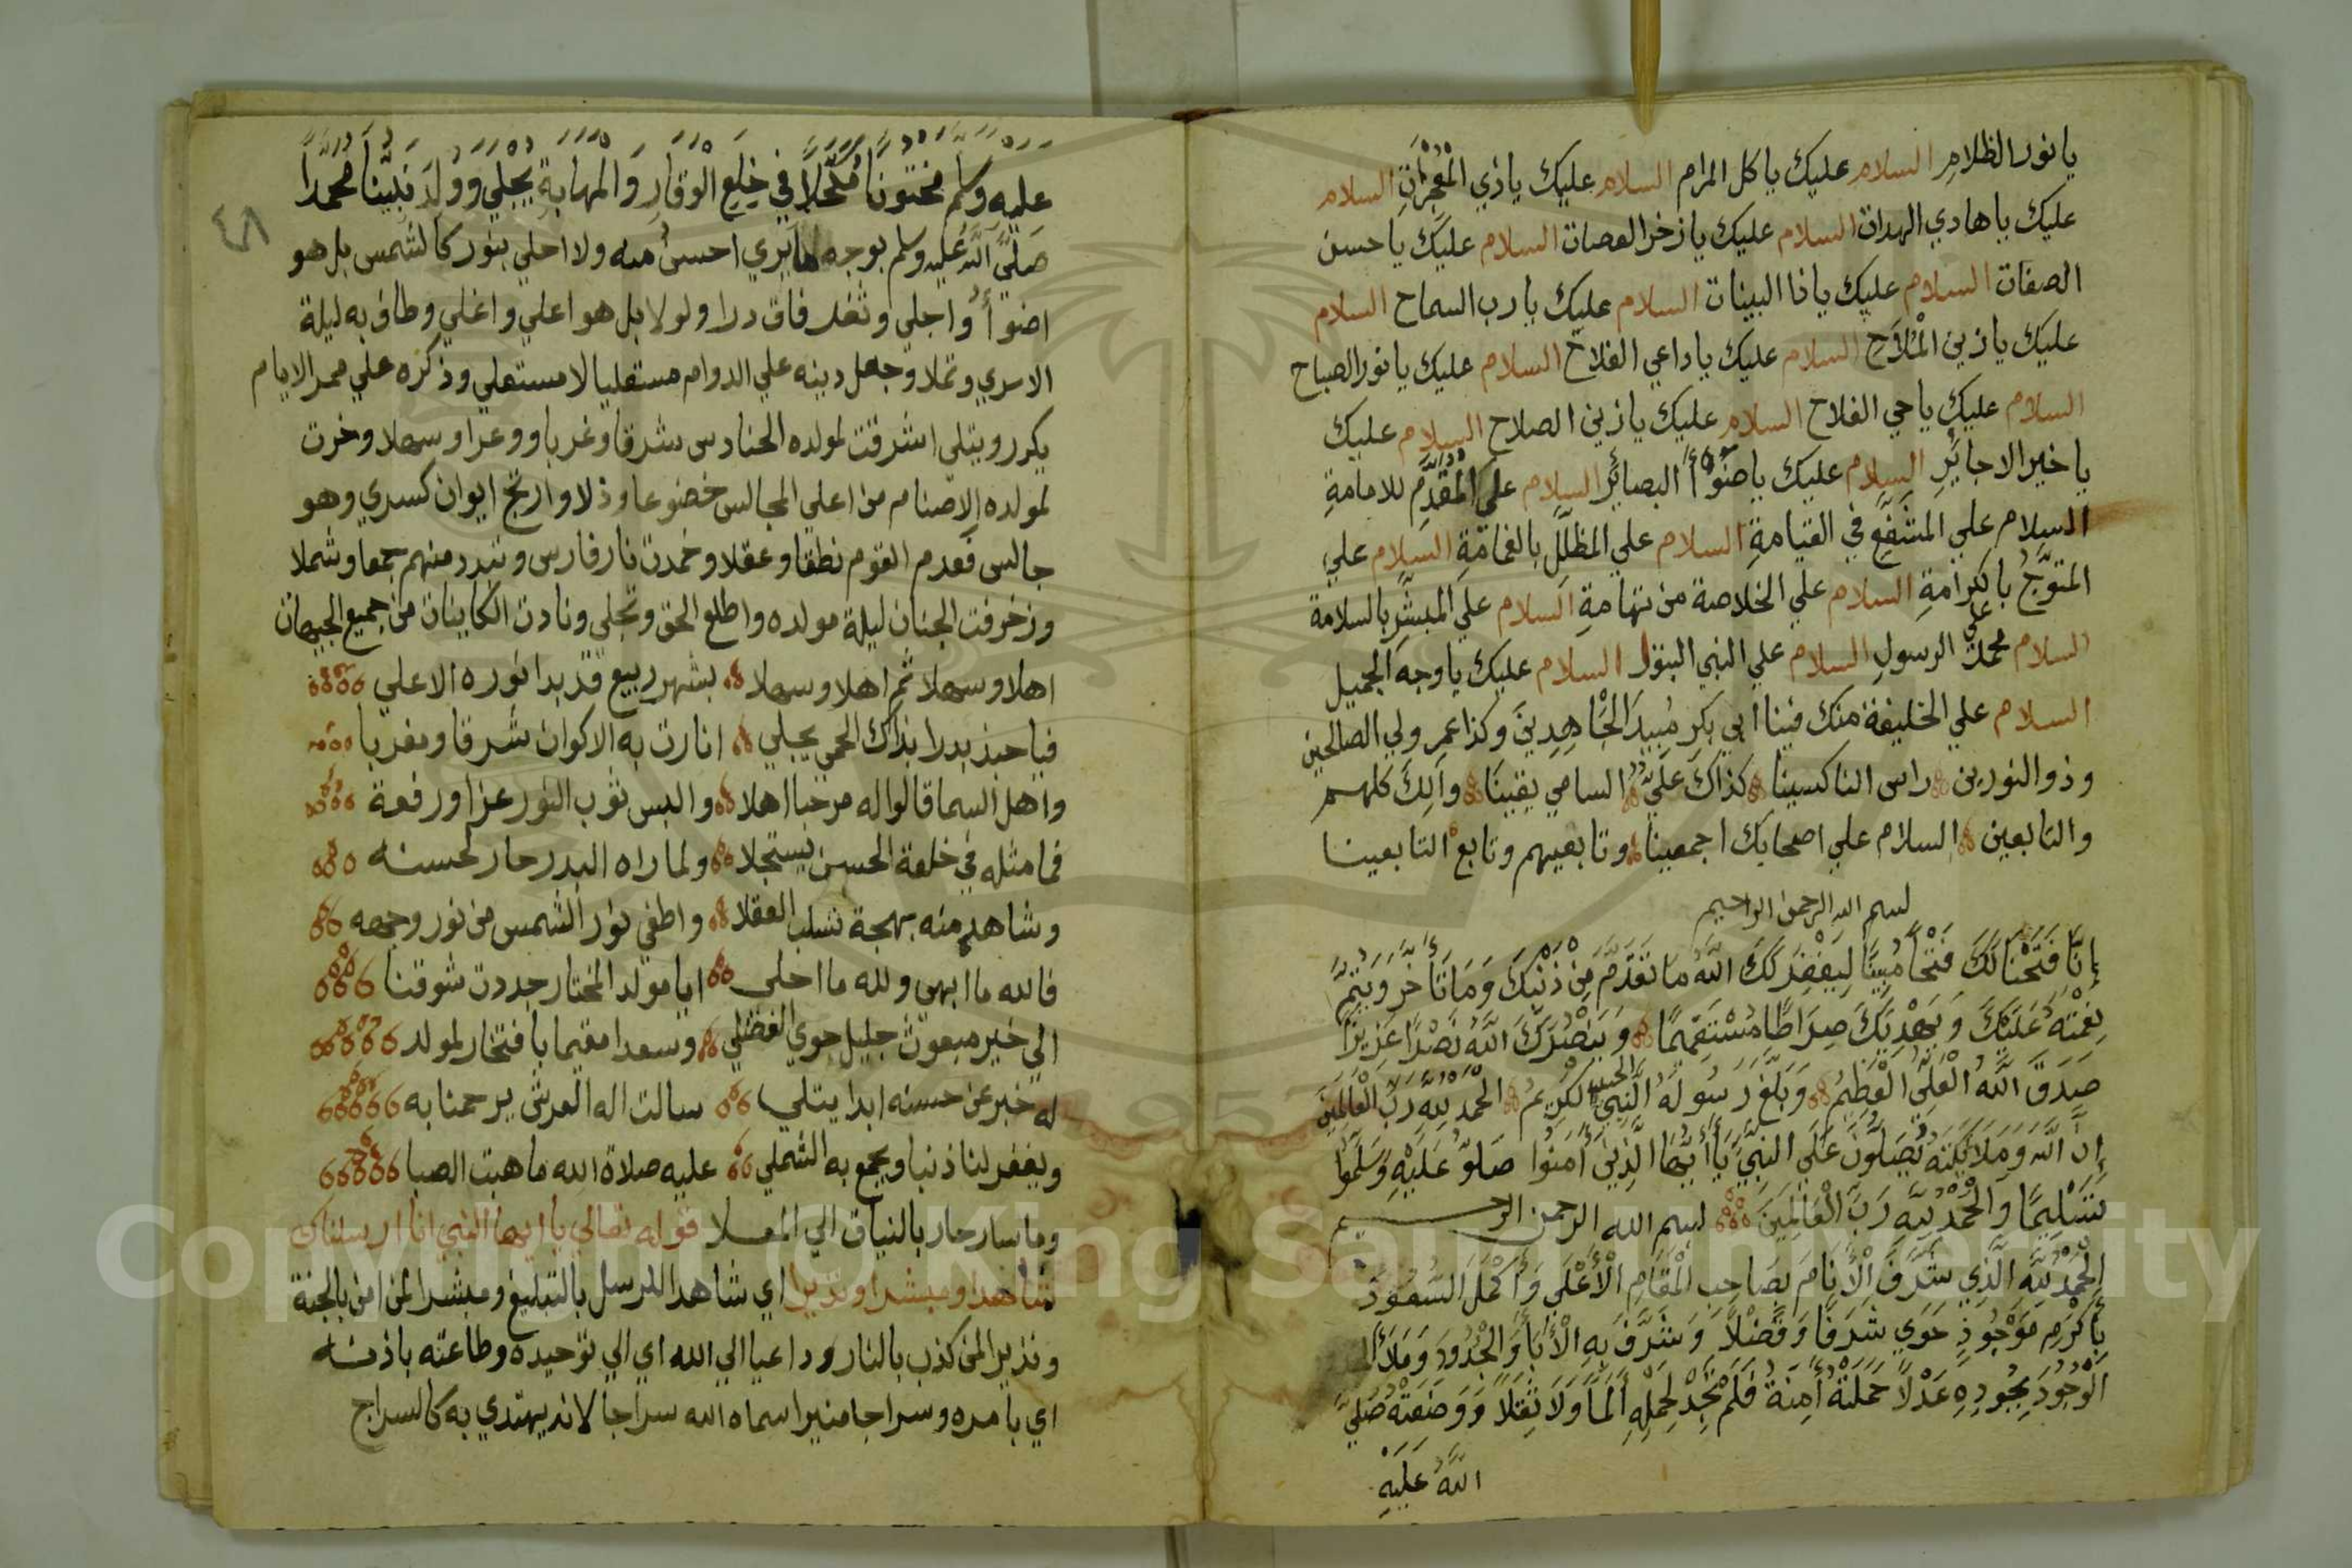 يا نور الظلام السلام عليك يا كل المرام السلام عليك يا ذي المعجزات السلام
عليك يا هادي الهدات السلام عليك يا زخر العصات السلام عليك يا حسن
الصفات السلام عليك يا ذا البينات السلام عليك يا رب السماح السلام
عليك يا زين الملاح السلام عليك يا داعي الفلاح السلام عليك يا نور الصباح
السلام عليك يا حي الفلاح السلام عليك يا زين الصلاح السلام عليك
يا خير الاجاير السلام عليك يا ضوأ البصائر السلام على المقدم للامامة
السلام علي المشفع في القيامة السلام علي المظلل بالغمامة السلام علي
المتوج بالكرامة السلام علي الخلاصة من تهامة السلام علي المبشر بالسلامة
السلام علي محمد الرسول السلام علي النبي البتول السلام عليك يا وجه الجميل
السلام علي الخليفة منك فينا ابي بكر مبيد الجاهدين وكذا عمر ولي الصالحين
وذو النورين راس الناكسينا كذاك علي السامي يقينا وآلك كلهم
والتابعين السلام علي اصحابك اجمعينا وتابعيهم وتابع التابعينا
بسم الله الرحمن الرحيم
إنا فتحنا لك فتحا مبينا ليغفر لك الله ما تقدم من ذنبك وما تأخر ويتم
نعمته عليك ويهديك صراطا مستقيما وينصرك الله نصرا عزيزا
صدق الله العلي العظيم وبلغ رسوله النبي الحبيب الكريم الحمد لله رب العالمين
إن الله وملائكته يصلون على النبي يا أيها الذين آمنوا صلو عليه وسلموا
تسليما والحمد لله رب العالمين بسم الله الرحمن الرحيم
الحمد لله الذي شرف الأنام بصاحب المقام الأعلى وأكمل السعود
بأكرم موجوذ حوى شرفا وفضلا وشرف به الأباء والجدود وملأ
الوجود بجوده عدلا حملته أمنة فلم تجد لحمله ألما ولا ثقلا ووضعته صلى
الله عليه
٤٨
عليه وسلم مختونا مكحلا في خلع الوقار والمهابة يجلي وولد نبينا محمدا
صلى الله عليه وسلم بوجه ما يري احسن منه ولا احلي بنور كالشمس بل هو
اضوأ واجلي وثغر فاق درا ولولا بل هو اعلي واغلي وطاف به ليلة
الاسري وتملا وجعل دينه علي الدوام مستعليا لا مستعلي وذكره علي ممر الايام
يكرر ويتلى اشرقت لمولده الحنادس شرقا وغربا ووعرا وسهلا وخرت
لمولده الاصنام من اعلي المجالس خضوعا وذلا وارتج ايوان كسري وهو
جالس فعدم القوم نطقا وعقلا وخمدت نار فارس وتبدد منهم جمعا وشملا
وزخرفت الجنان ليلة مولده واطلع الحق وتجلي ونادت الكاينات من جميع الجيهات
اهلا وسهلا ثم اهلا وسهلا بشهر ربيع قد بدا نوره الاعلي
فيا حبذ بدرا بذاك الحمي يجلي انارت به الاكوان شرقا ومغربا
واهل السما قالوا له مرحبا اهلا والبس ثوب النور عزا ورفعة
فما مثله في خلعة الحسن يستجلا ولما راه البدر حار لحسنه
وشاهد منه بهجة تسلب العقلا واطفي نور الشمس من نور وجهه
فالله ما ابهى ولله ما احلى ايا مولد المختار جددت شوقنا
الي خير مبعوث جليل حوي الفضلي وسعدا مقيما بافتخار لمولد
له خبر عن حسنه ابدا يتلي سالت اله العرش يرحمنا به
ويغفر لنا ذنبا ويجمع به الشملي عليه صلاة الله ما هبت الصبا
وما سار حار بالنياق الي المعلا قوله تعالي يا ايها النبي انا ارسلناك
شاهدا ومبشرا ونذيرا اي شاهدا للرسل بالتبليغ ومبشرا لمن امن بالجنة
ونذير المن كذب بالنار وداعيا الي الله اي الي توحيده وطاعته باذنه
اي بامره وسراجا منيرا سماه الله سراجا لانه يهتدي به كالسراج
Copyright © King Saud University
1957